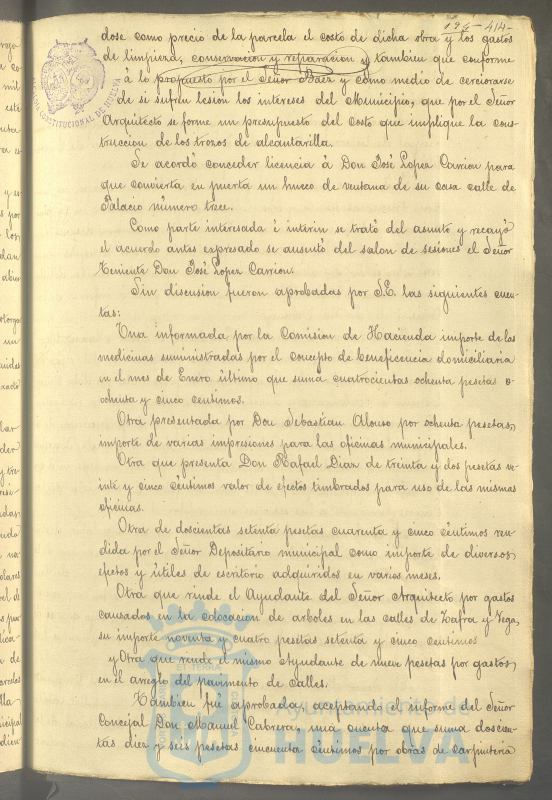 194-414-
dose como precio de la parcela el costo de dicha obra y los gastos
de limpieza, conservacion y reparacion y tambien que conforme
á lo propuesto por el Señor Baez y como medio de cerciorarse
de si sufren lesion los intereses del Municipio, que por el Señor
Arquitecto se forme un presupuesto del costo que implique la cons-
truccion de los trozos de alcantarilla.
Se acordó conceder licencia á Don José Lopez Carrion para
que convierta en puerta un hueco de ventana de su casa calle de
Palacio número trece.
Como parte interesada é interin se trató del asunto y recayó
el acuerdo antes expresado se ausentó del salon de sesiones el Señor
Teniente Don José Lopez Carrion.
Sin discusion fueron aprobadas por S.E. las siguientes cuen-
tas:
Una informada por la Comision de Hacienda importe de las
medicinas suministradas por el concepto de beneficencia domiciliaria
en el mes de Enero último que suma cuatrocientas ochenta pesetas o-
chenta y cinco centimos.
Otra presentada por Don Sebastian Alonso por ochenta pesetas,
importe de varias impresiones para las oficinas municipales.
Otra que presenta Don Rafael Diaz de treinta y dos pesetas ve-
inte y cinco céntimos valor de efectos timbrados para uso de las mismas
oficinas.
Otra de doscientas setenta pesetas cuarenta y cinco céntimos ren-
dida por el Señor Depositario municipal como importe de diversos
efectos y útiles de escritorio adquiridos en varios meses.
Otra que rinde el Ayudante del Señor Arquitecto por gastos
causados en la colocacion de arboles en las calles de Zafra y Vega,
su importe noventa y cuatro pesetas setenta y cinco centimos
y Otra que rinde el mismo Ayudante de nueve pesetas por gastos
en el arreglo del pavimento de calles.
Tambien fué aprobada, aceptando el informe del Señor
Concejal Don Manuel Cabrera, una cuenta que suma doscien-
tas diez y seis pesetas cincuenta céntimos por obras de carpinteria
Ayuntamiento de
HUELVA